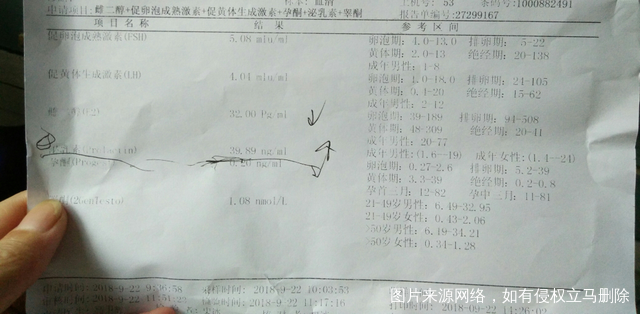 标本: 血清 上机号: 53 条码号:1000882491
申请项目:雌二醇+促卵泡成熟激素+促黄体生成激素+孕酮+泌乳素+睾酮 报告单编号:27299167
项目名称 结果 参考区间
促卵泡成熟激素(FSH) 5.08 mlu/ml 卵泡期: 4.0-13.0 排卵期: 5-22
黄体期: 2.0-13 绝经期: 20-138
成年男性: 1-8
促黄体生成激素(LH) 4.04 mlu/ml 卵泡期: 1.0-18.0 排卵期: 24-105
黄体期: 0.4-20 绝经期: 15-62
成年男性: 2-12
32.00 Pg/ml ↓ 卵泡期: 39-189 排卵期: 94-508
黄体期: 48-309 绝经期: 20-41
成年男性: 20-77
39.89 ng/ml ↑ 成年男性:(1.6-19) 成年女性:(1.4-24)
孕酮 0.26 ng/ml 卵泡期: 0.27-2.6 排卵期: 5.2-39
黄体期: 3.3-39 绝经期: 0.2-0.8
孕首三月: 12-82 孕中三月: 11-81
4.08 nmol/L 21-49岁男性: 6.49-32.95
21-49岁女性: 0.43-2.06
>50岁男性: 6.19-34.21
>50岁女性: 0.34-1.28
申请时间: 2018-9-22 9:36:58 采样时间: 2018-9-22 10:03:53
审核时间: 2018-9-22 11:51:23 检验时间: 2018-9-22 11:17:16
图片来源网络,如有侵权立马删除